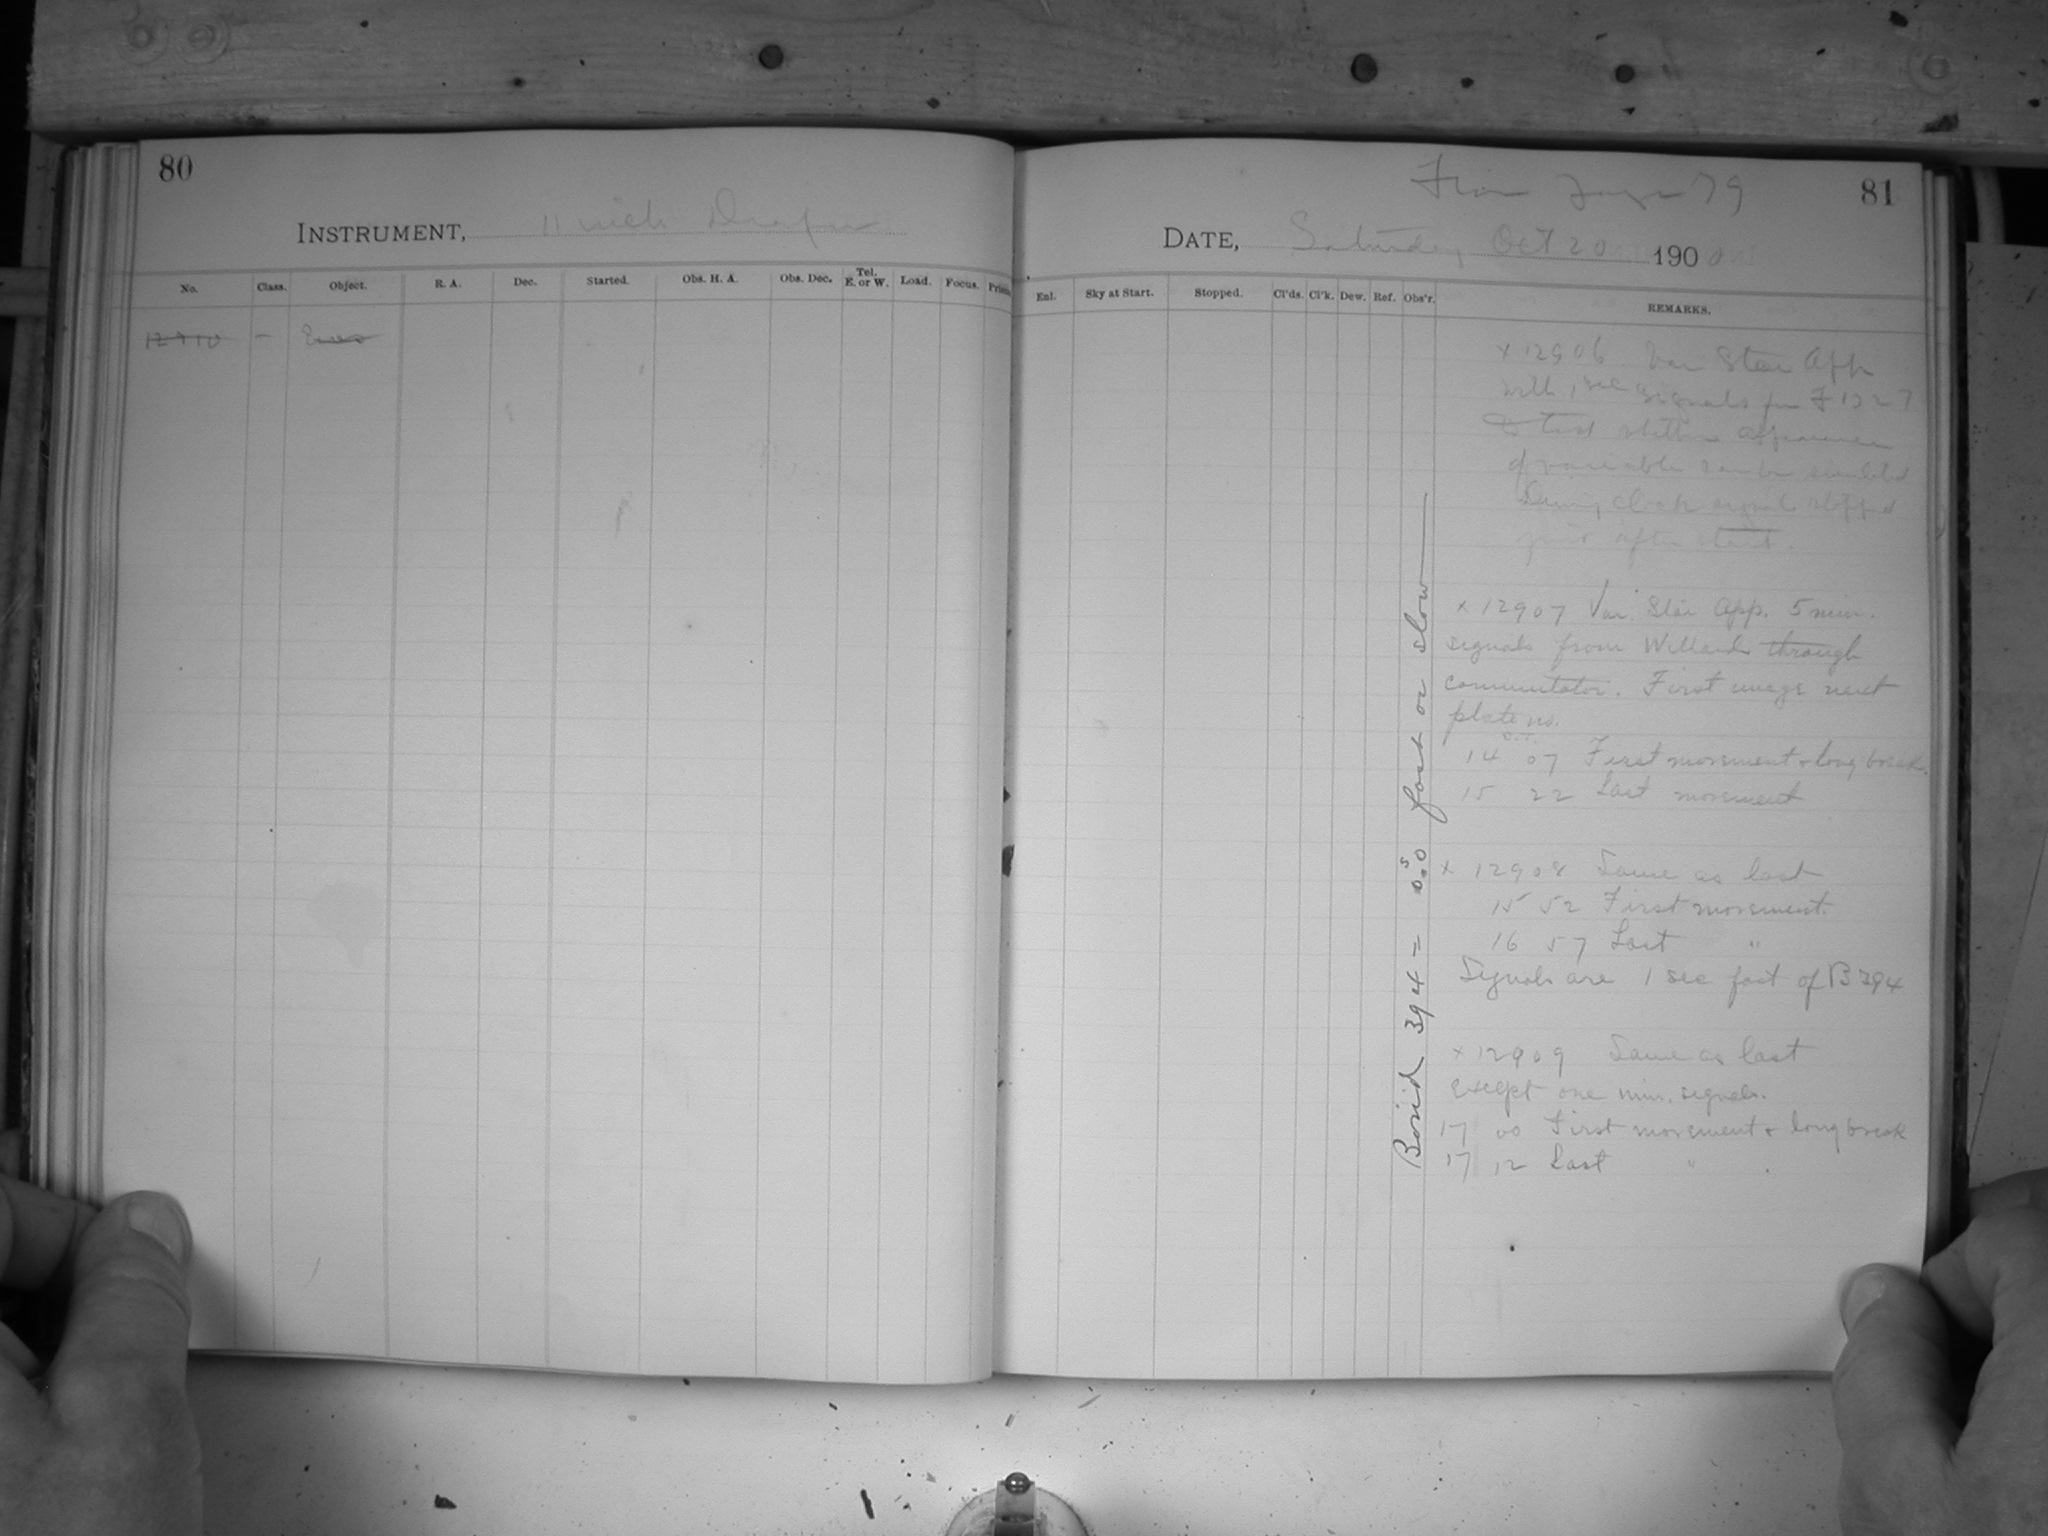 80
INSTRUMENT, 11 inch Draper
No. Class. Object. R. A. Dec. Started. Obs. H. A. Obs. Dec. Tel. E. or W. Load. Focus. Prism
12910 — Eros
From page 79
81
DATE, Saturday Oct 20 1900
Enl. Sky at Start. Stopped. Cl'ds. Cl'k. Dew. Ref. Obs'r. REMARKS.
x 12906 Var Star App
with 1 sec signals for
to test whether appearance
of variable can be
During clock signals stopped
just after start.
x 12907 Var. Star App. 5 min.
signals from Willard through
commutator. First image next
plate no.
14 07 First movement & long break.
15 22 Last movement
x 12908 Same as last
15 52 First movement.
16 57 Last "
Signals are 1 sec fast of B 394
x 12909 Same as last
except one min. signals.
17 00 First movement & long break
17 12 Last "
Bond 394 = 0.s0 fast or slow